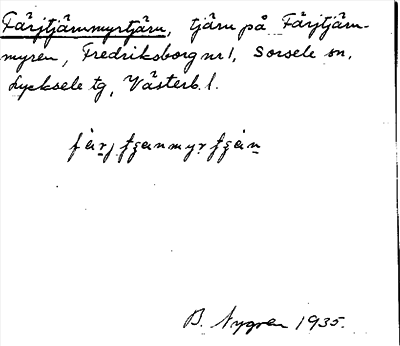 Färjtjärnmyrtjärn, tjärn på Färjtjärn-
myren, Fredriksborg nr 1, Sorsele sn,
Lycksele tg, Västerb. l.
B. Nygren 1935.